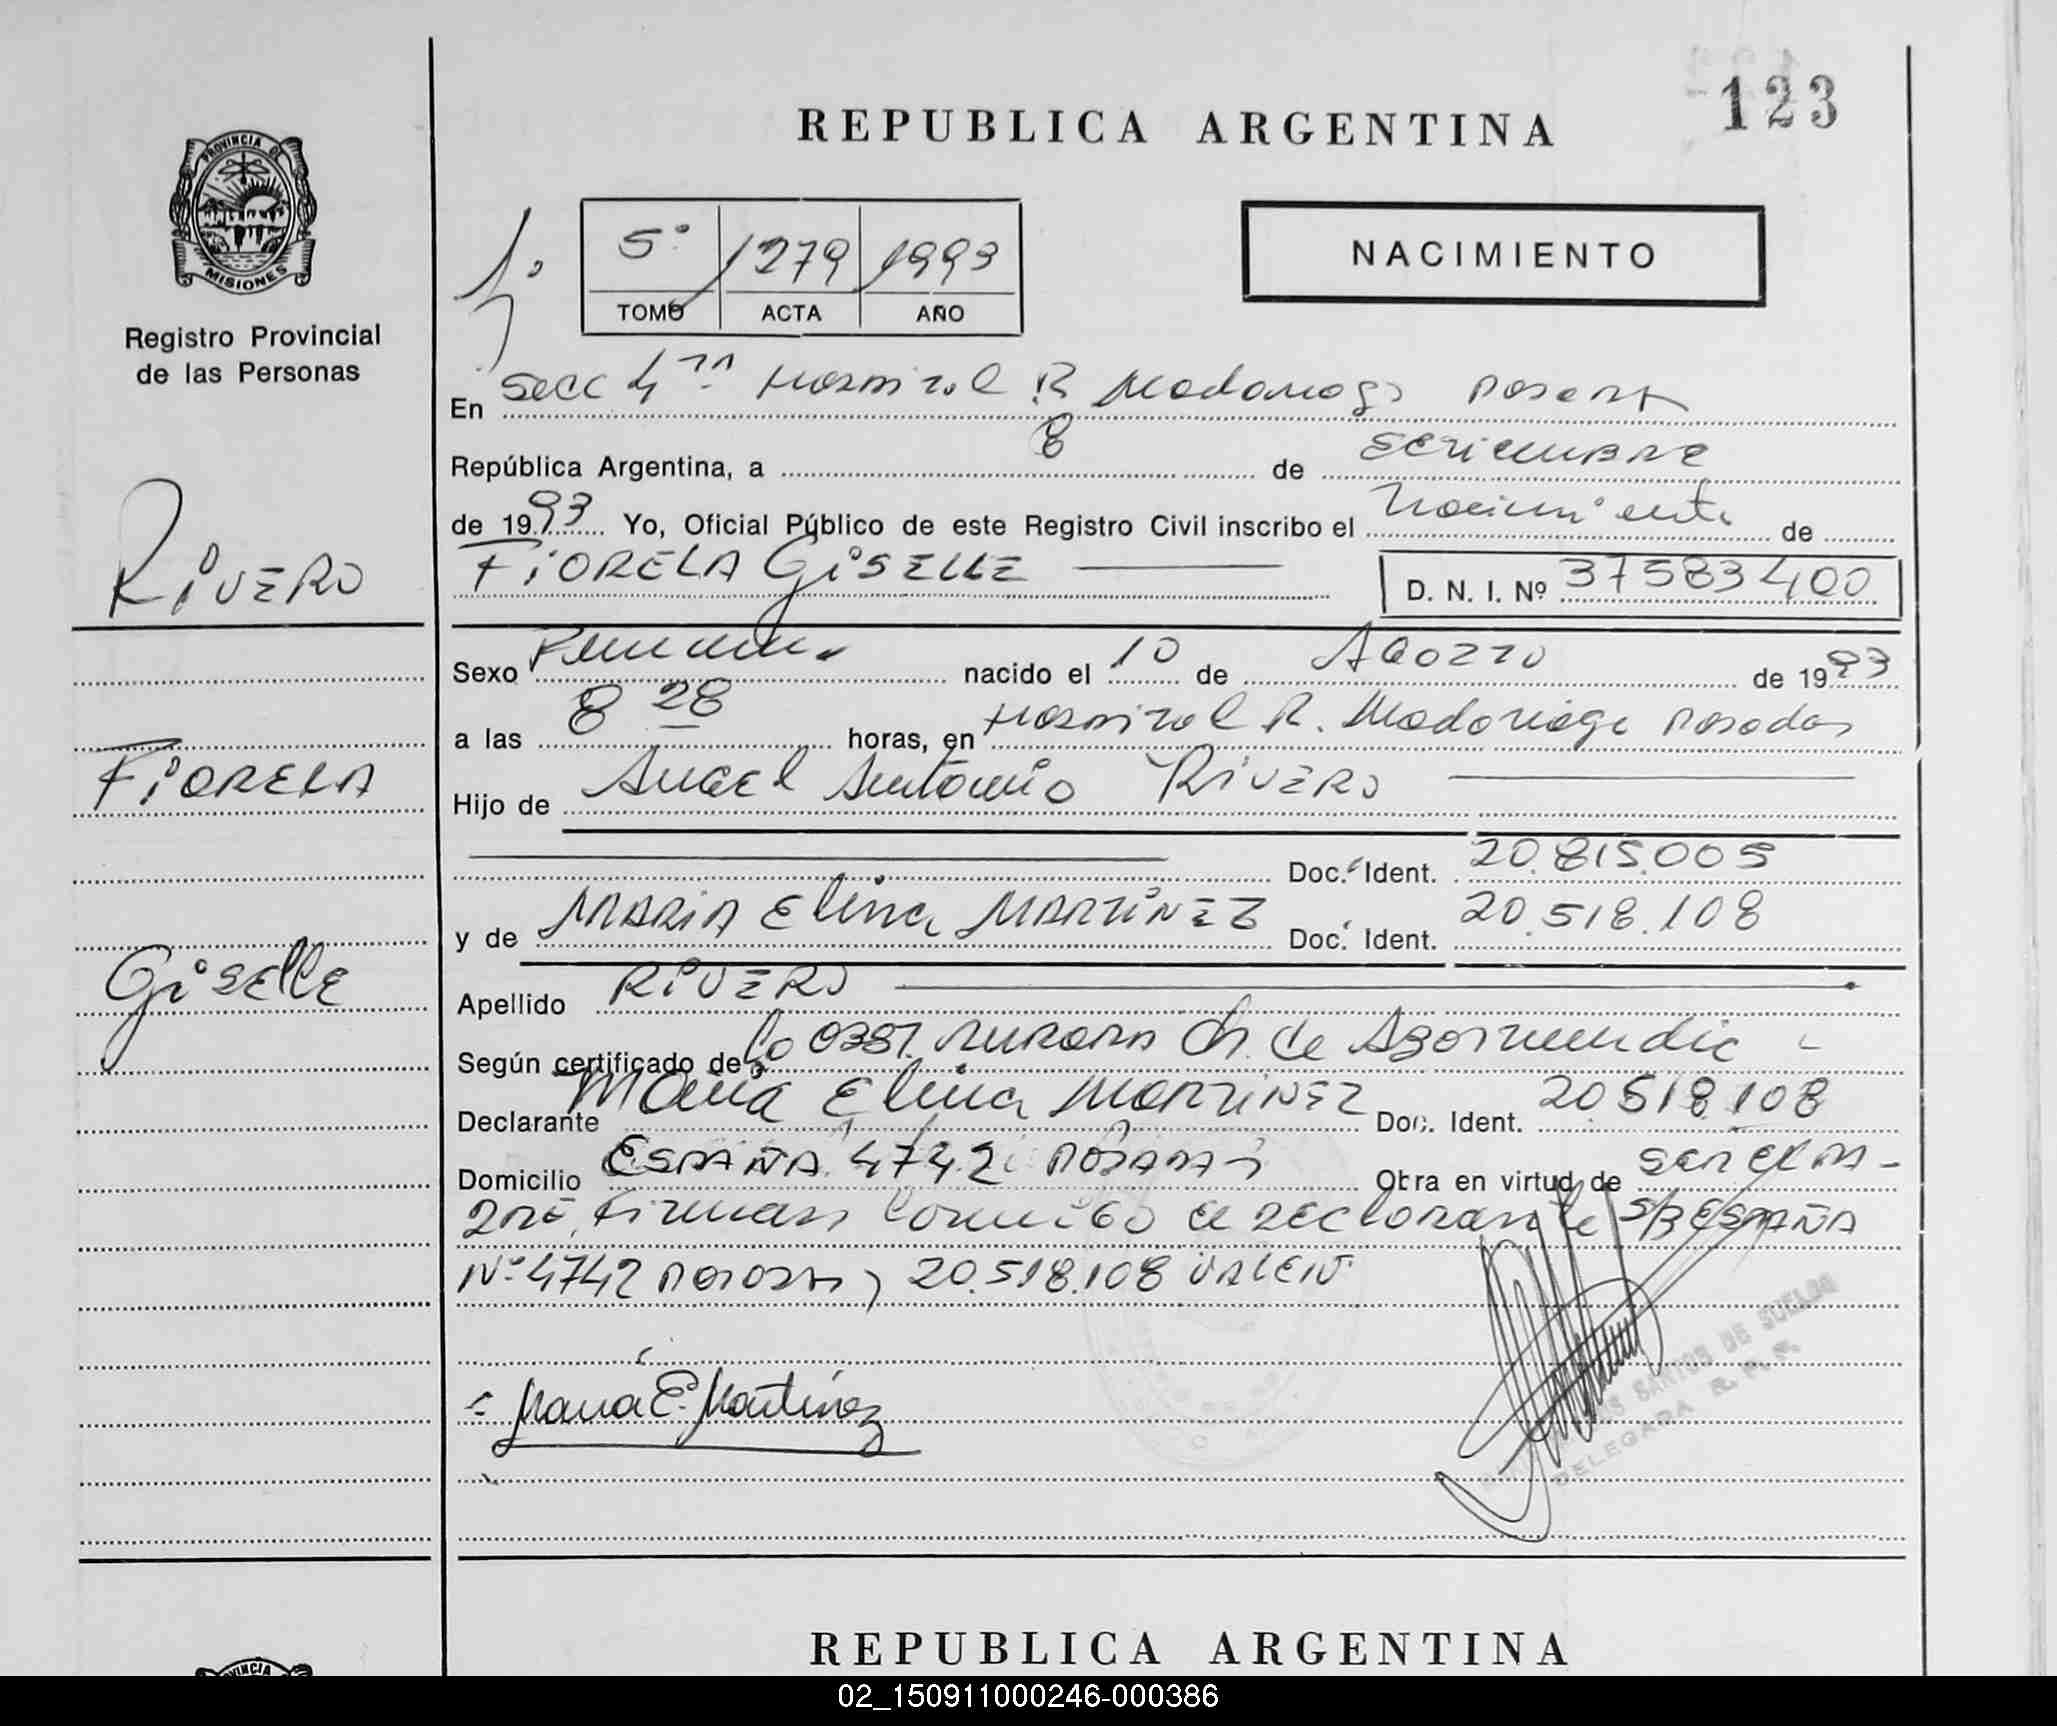 123
REPUBLICA ARGENTINA
PROVINCIA DE
MISIONES
Registro Provincial
de las Personas
5° 1279 1993
TOMO ACTA AÑO
NACIMIENTO
En Secc 4ta Hospital R Madariaga Posadas
República Argentina, a 8 de SETIEMBRE
de 1993 Yo, Oficial Público de este Registro Civil inscribo el Nacimiento de
FIORELA GISELLE D. N. I. Nº 37583400
RIVERO
FIORELA
Giselle
Sexo Femenino nacido el 10 de AGOSTO de 1993
a las 8 28 horas, en Hospital R. Madariaga Posadas
Hijo de Angel Antonio RIVERO
Doc. Ident. 20.815.005
y de MARIA Elina MARTINEZ Doc. Ident. 20.518.108
Apellido RIVERO
Según certificado de Aurora Ch. de
Declarante Maria Elina MARTINEZ Doc. Ident. 20518.108
Domicilio ESPAÑA 4742 POSADAS Obra en virtud de
Firman conmigo declarante S/B ESPAÑA
Nº 4742 Posadas, 20.518.108 VALEN
Maria E. Martinez
SANTOS DE SUELDO
DELEGADA R. P. P.
REPUBLICA ARGENTINA
02_150911000246-000386